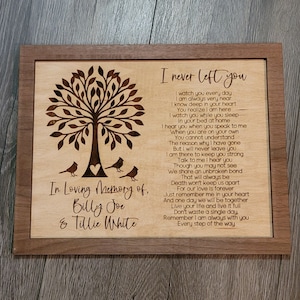 I never left you
I watch you every day
I am always very near
I know deep in your heart
You realize I am here
I watch you while you sleep
In your bed at home
I hear you when you speak to me
When you are on your own
You cannot understand
The reason why I have gone
But I will never leave you
I am there to keep you strong
Talk to me I hear you
Though you may not see
We share an unbroken bond
That will always be
Death won't keep us apart
For our love is forever
Just remember me in your heart
And one day we will be together
Live your life and live it full
Don't waste a single day
Remember I am always with you
Every step of the way
In Loving Memory of,
Billy Joe
& Tillie White